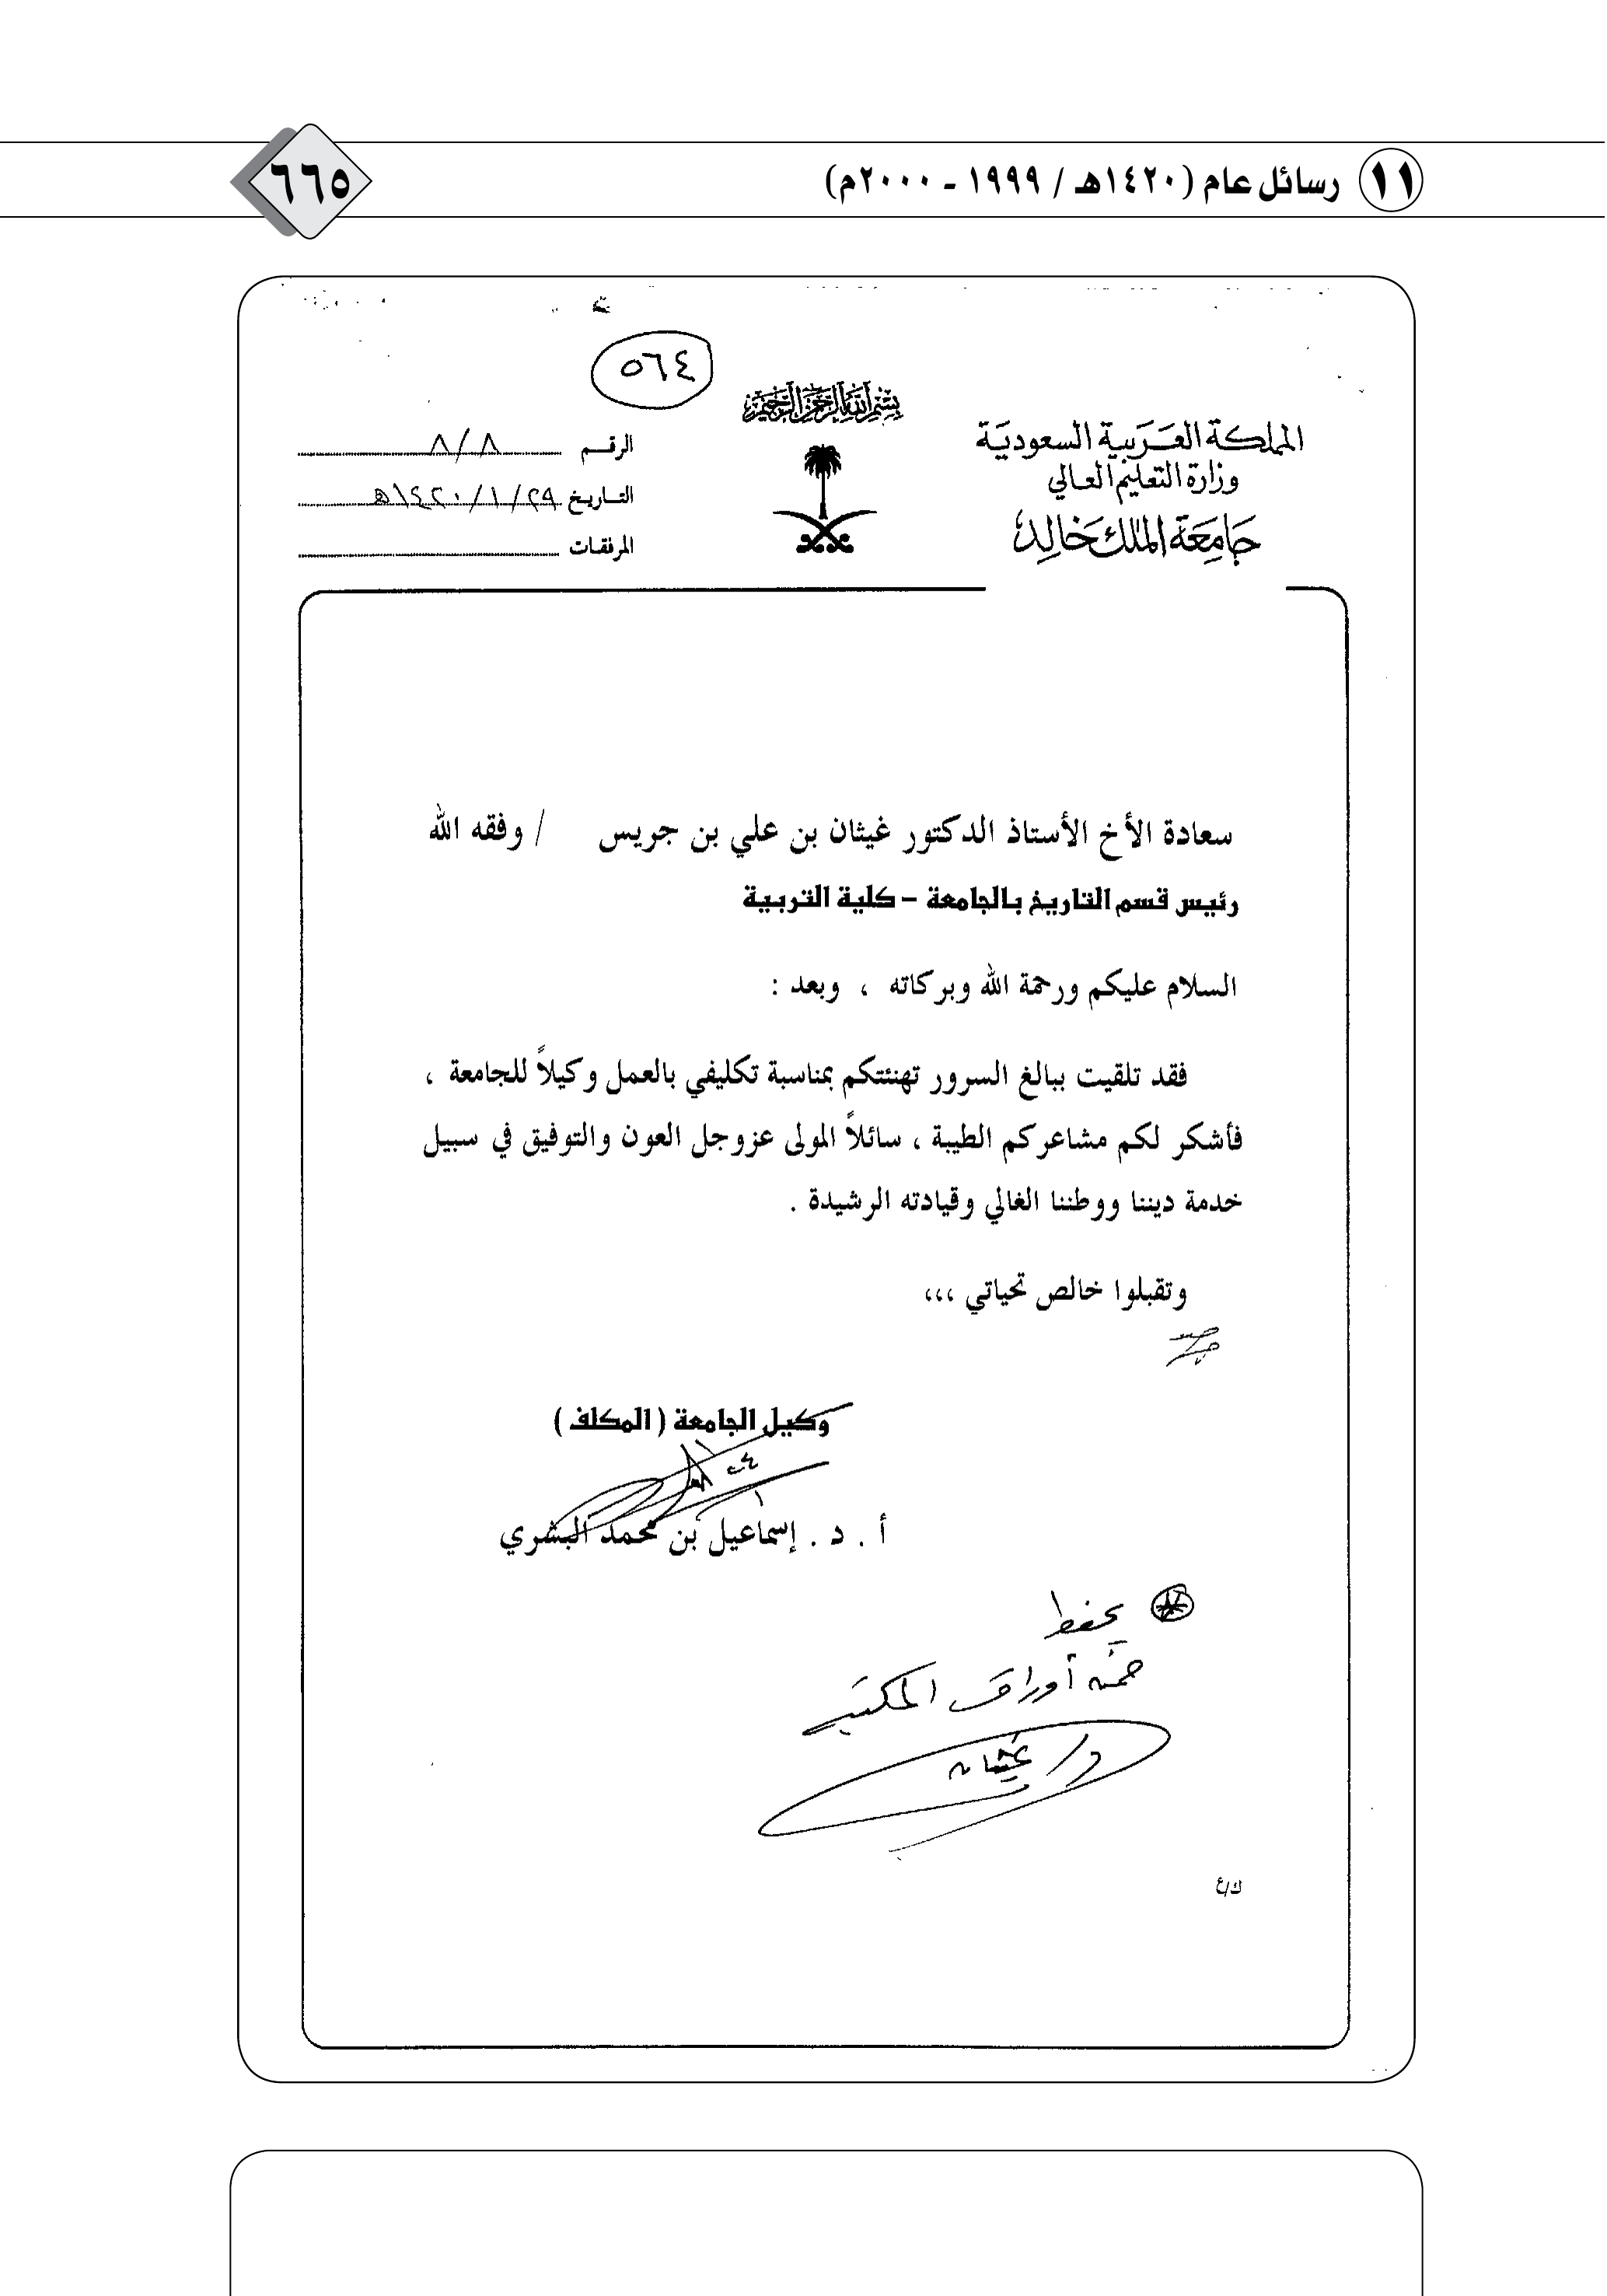 ١١ رسائل عام (١٤٢٠هـ / ١٩٩٩ ـ ٢٠٠٠م)
٦٦٥
٥٦٤
بسم الله الرحمن الرحيم
المملكة العربية السعودية
وزارة التعليم العالي
جامعة الملك خالد
الرقم ٨/٨
التاريخ ٢٩/١/١٤٢٠هـ
المرفقات
سعادة الأخ الأستاذ الدكتور غيثان بن علي بن جريس / وفقه الله
رئيس قسم التاريخ بالجامعة – كلية التربية
السلام عليكم ورحمة الله وبركاته ، وبعد :
فقد تلقيت ببالغ السرور تهنئتكم بمناسبة تكليفي بالعمل وكيلاً للجامعة ،
فأشكر لكم مشاعركم الطيبة ، سائلاً المولى عزوجل العون والتوفيق في سبيل
خدمة ديننا ووطننا الغالي وقيادته الرشيدة .
وتقبلوا خالص تحياتي ،،،
وكيل الجامعة ( المكلف )
أ . د . إسماعيل بن محمد البشري
يحفظ
ضمن أوراق المكتبة
د/ غيثان
ك/ع